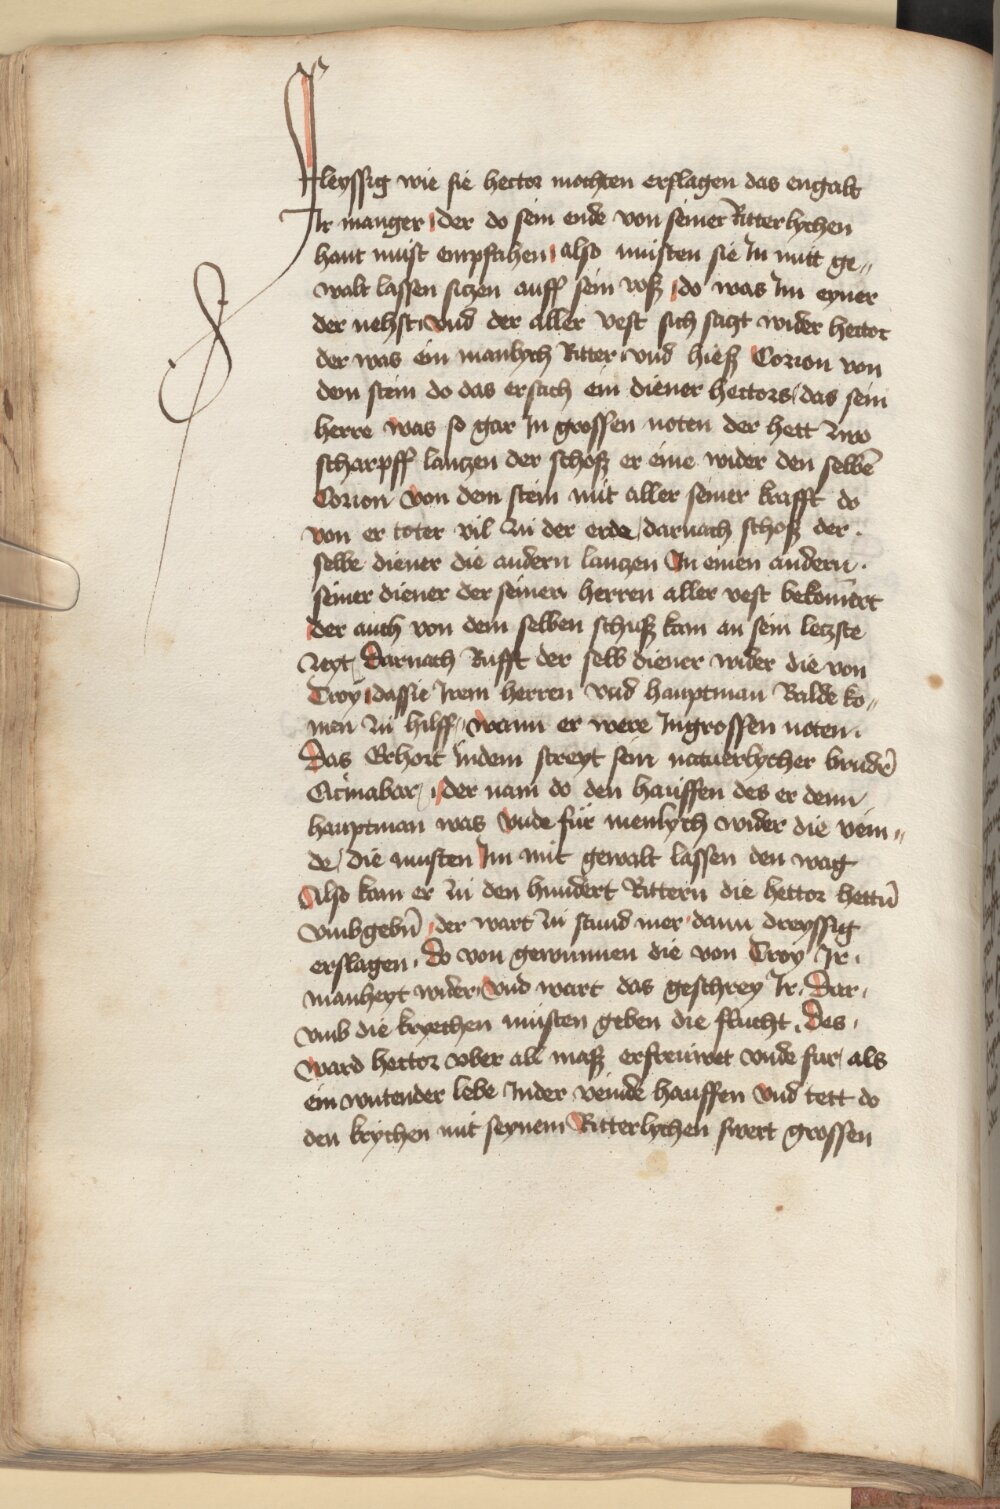 Fleyssig wie sie hector mochten erslagen das engalt
Ir manger der do sein ende von seiner Ritterlychen
hant must empfahen also musten sie In mitt ge„
walt lassen siczen auff sein roß do was Im eyner
der nehst vnd der aller vest sich saczt wider hector
der was ein manlych Ritter vnd hieß Corion von
dem stein do das ersach ein diener hectors / das sein
herre was so gar In grossen noten der hett zwo
scharpff lanczen der schoß er eine wider den selbē
Corion von dem stein mit aller seiner krafft do
von er toter vil zu der erde / darnach schoß der ·
selbe diener die andern lanczen In einen andern ·
seiner diener der seinen herren aller vest bekom̄ert
der auch von dem selben schuß kam an sein leczste
zeyt / Darnach Rufft der selb diener wider die von
Troy dassie Irem herren vnd hauptman Balde ko„
men zu hilff / wann er were Ingrossen noten ·
Das Erhort Indem streyt sein natuerlycher brudeȓ
Cicinabar / der nam do den hauffen des er denn
hauptman was vnde für menlych wider die vein„
de / die musten Im mit gewalt lassen den wag
Also kam er zu den hundert Rittern die hector hettn̄
vmbgebn̄ der wart zu stund mer dann dreyssig
erslagen · do von gewunnen die von Troy Ir ·
manheyt wider vnd wart das geschrey Ir · Dar ·
vmb die kryechen musten geben die flucht · Des ·
ward hector vber all maß erfreuwet vnde fur als
ein wutender lebe Inder veinde hauffen vnd tett do
den krychen mit seynem Ritterlychen swert grossen